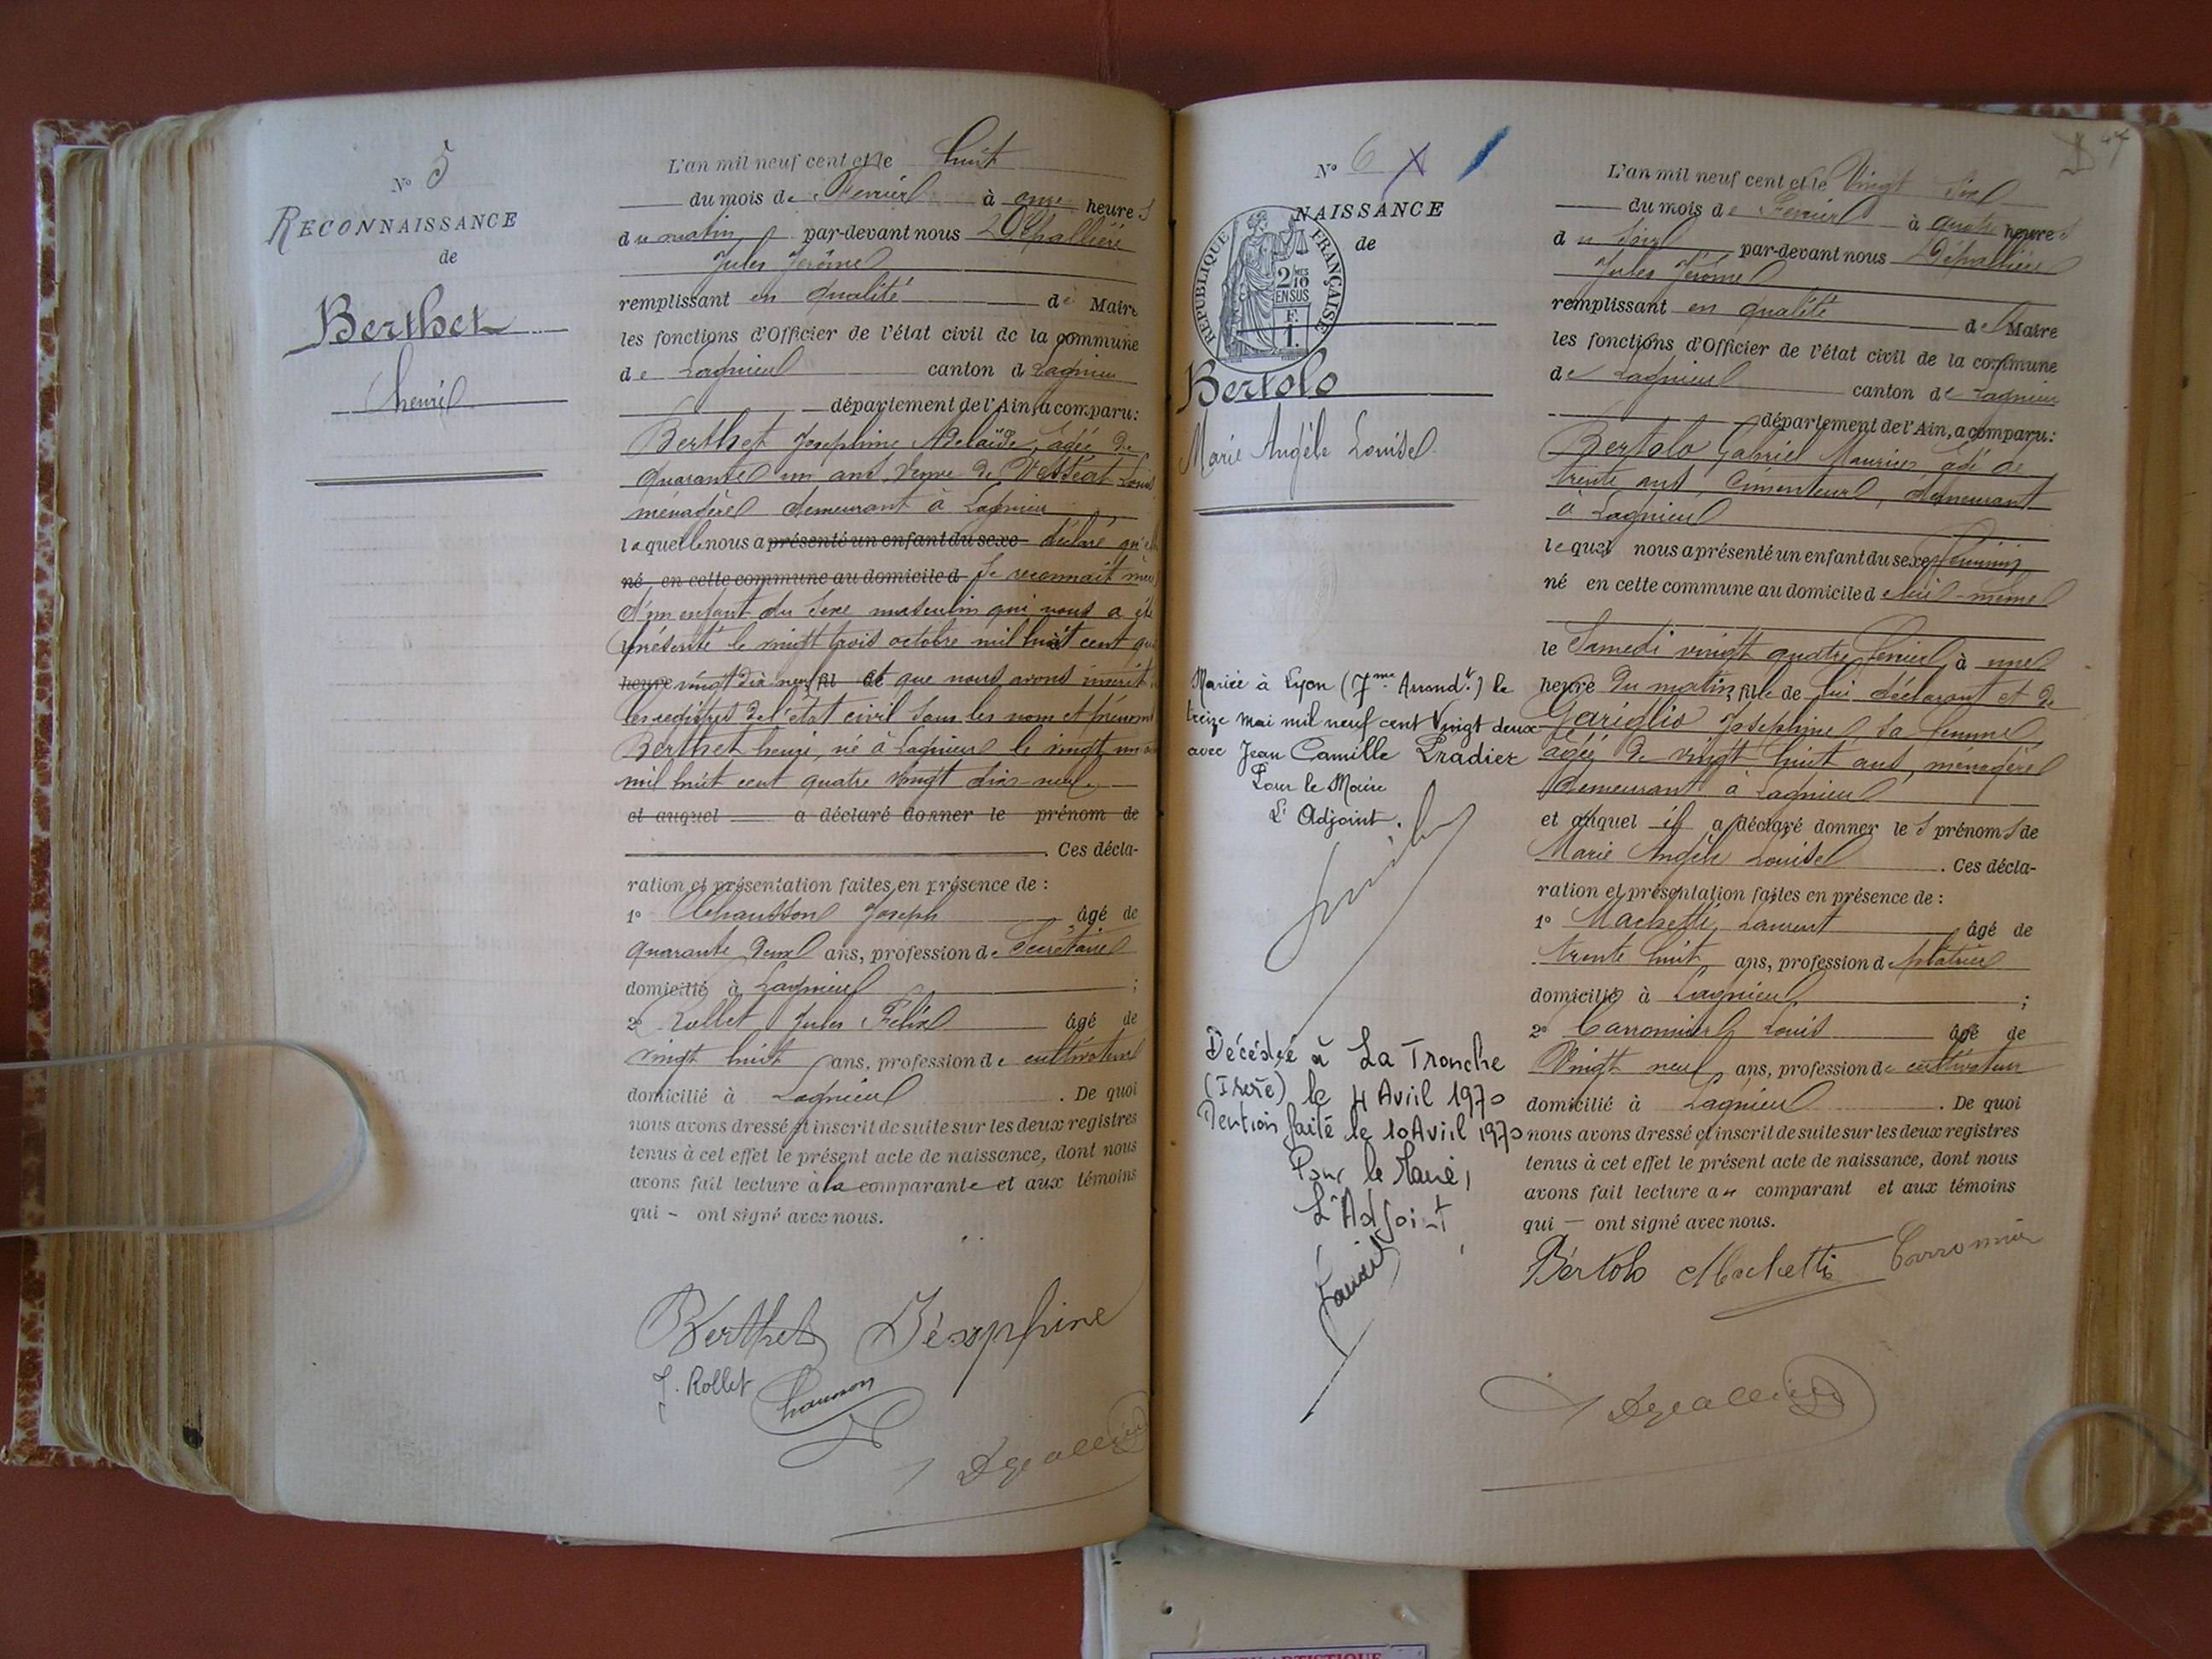 N° 5
RECONNAISSANCE
de
Berthet
henri
L'an mil neuf cent et le huit
du mois de Fevrier à onze heures
du matin par-devant nous Dépallière
Jules Jérôme
remplissant en qualité de Maire
les fonctions d'Officier de l'état civil de la commune
de Lagnieu canton d Lagnieu
département de l'Ain, a comparu:
Berthet Josephine Adelaïde, agée de
quarante un ans, Veuve de Louis
ménagère demeurant à Lagnieu
laquelle nous a présenté un enfant du sexe déclaré qu'elle
né, en cette commune au domicile d Se reconnait mère
d'un enfant du sexe masculin qui nous a été
présenté le vingt trois octobre mil huit cent qua
heure vingt dix neuf fil et que nous avons inscrit
les registres de l'état civil sous les nom et prénoms
Berthet henri, né à Lagnieu le vingt un
mil huit cent quatre vingt dix-neuf.
et auquel a déclaré donner le prénom de
. Ces décla-
ration et présentation faites en présence de :
1° Chausson Joseph âgé de
quarante deux ans, profession de Secrétaire
domicilié à Lagnieu ;
2° Rollet Jules Félix âgé de
vingt huit ans, profession de cultivateur
domicilié à Lagnieu . De quoi
nous avons dressé et inscrit de suite sur les deux registres
tenus à cet effet le présent acte de naissance, dont nous
avons fait lecture à la comparante et aux témoins
qui – ont signé avec nous.
Berthet Joséphine
J. Rollet Chausson
N° 6
NAISSANCE
de
REPUBLIQUE FRANÇAISE
2/10 MES
EN SUS
F.
1.
Bertolo
Marie Angèle Louise
Mariée à Lyon (7me Arrondt.) le
treize mai mil neuf cent Vingt deux
avec Jean Camille Pradier
Pour le Maire
L' Adjoint.
Décédée à La Tronche
(Isère) le 4 Avril 1970
Mention faite le 10 Avril 1970
Pour le Maire,
L'Adjoint
47
L'an mil neuf cent et le Vingt Six
du mois de Fevrier à quatre heures
du Soir par-devant nous Dépallière
Jules Jérôme
remplissant en qualité de Maire
les fonctions d'Officier de l'état civil de la commune
de Lagnieu canton de Lagnieu
département de l'Ain, a comparu:
Bertolo Gabriel Maurice, agé de
trente ans Cimenteur, demeurant
à Lagnieu
lequel nous a présenté un enfant du sexe féminin
né en cette commune au domicile de lui-même
le Samedi vingt quatre fevrier, à une
heure du matin, fille de lui déclarant et de
Gariglio Josephine sa femme,
agée de vingt huit ans, ménagère
demeurant à Lagnieu
et auquel il a déclaré donner les prénoms de
Marie Angèle Louise . Ces décla-
ration et présentation faites en présence de :
1° Machetti, Laurent âgé de
trente huit ans, profession de plâtrier
domicilié à Lagnieu ;
2° Carronnier Louis âgé de
Vingt neuf ans, profession de cultivateur
domicilié à Lagnieu . De quoi
nous avons dressé et inscrit de suite sur les deux registres
tenus à cet effet le présent acte de naissance, dont nous
avons fait lecture au comparant et aux témoins
qui — ont signé avec nous.
Bertolo Machetti Carronnier
ARTISTIQUE